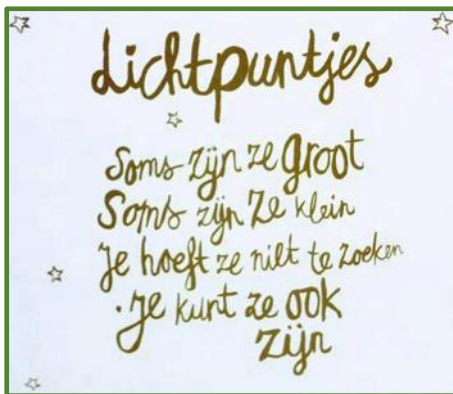 Lichtpuntjes
Soms zijn ze groot
Soms zijn ze klein
je hoeft ze niet te zoeken
. je kunt ze ook
zijn